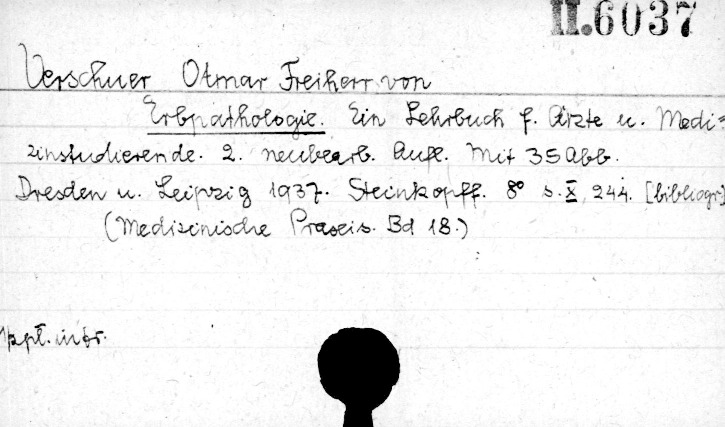 II.6037
Verschuer Otmar Freiherr von
Erbpathologie. Ein Lehrbuch f. Ärzte u. Medi=
zinstudierende. 2. neubearb. Aufl. Mit 35 Abb.
Dresden u. Leipzig 1937. Steinkopff. 8° s. X, 244. [bibliogr]
(Medizinische Praxis. Bd 18.)